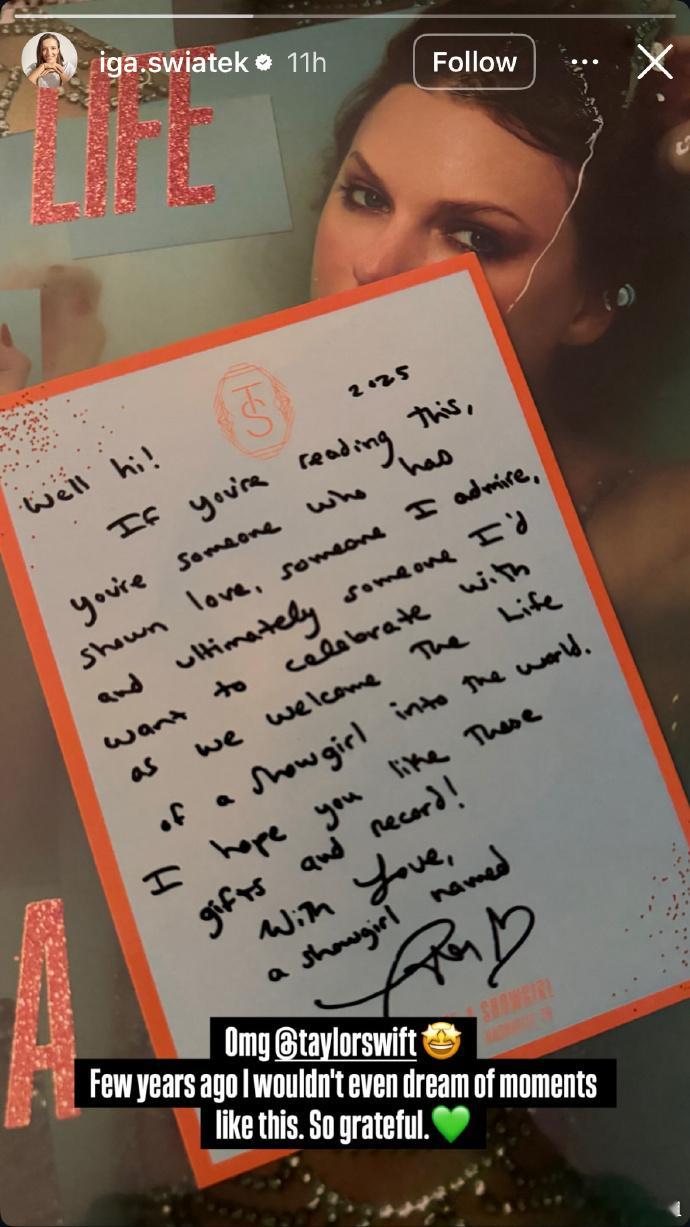 iga.swiatek 11h Follow
LIFE
TS
2025
Well hi!
If you're reading this,
you're someone who has
shown love, someone I admire,
and ultimately someone I'd
want to celebrate with
as we welcome The Life
of a Showgirl into the world.
I hope you like these
gifts and record!
With Love,
a showgirl named
A SHOWGIRL
A
Omg @taylorswift 🤩
Few years ago I wouldn't even dream of moments
like this. So grateful.💚